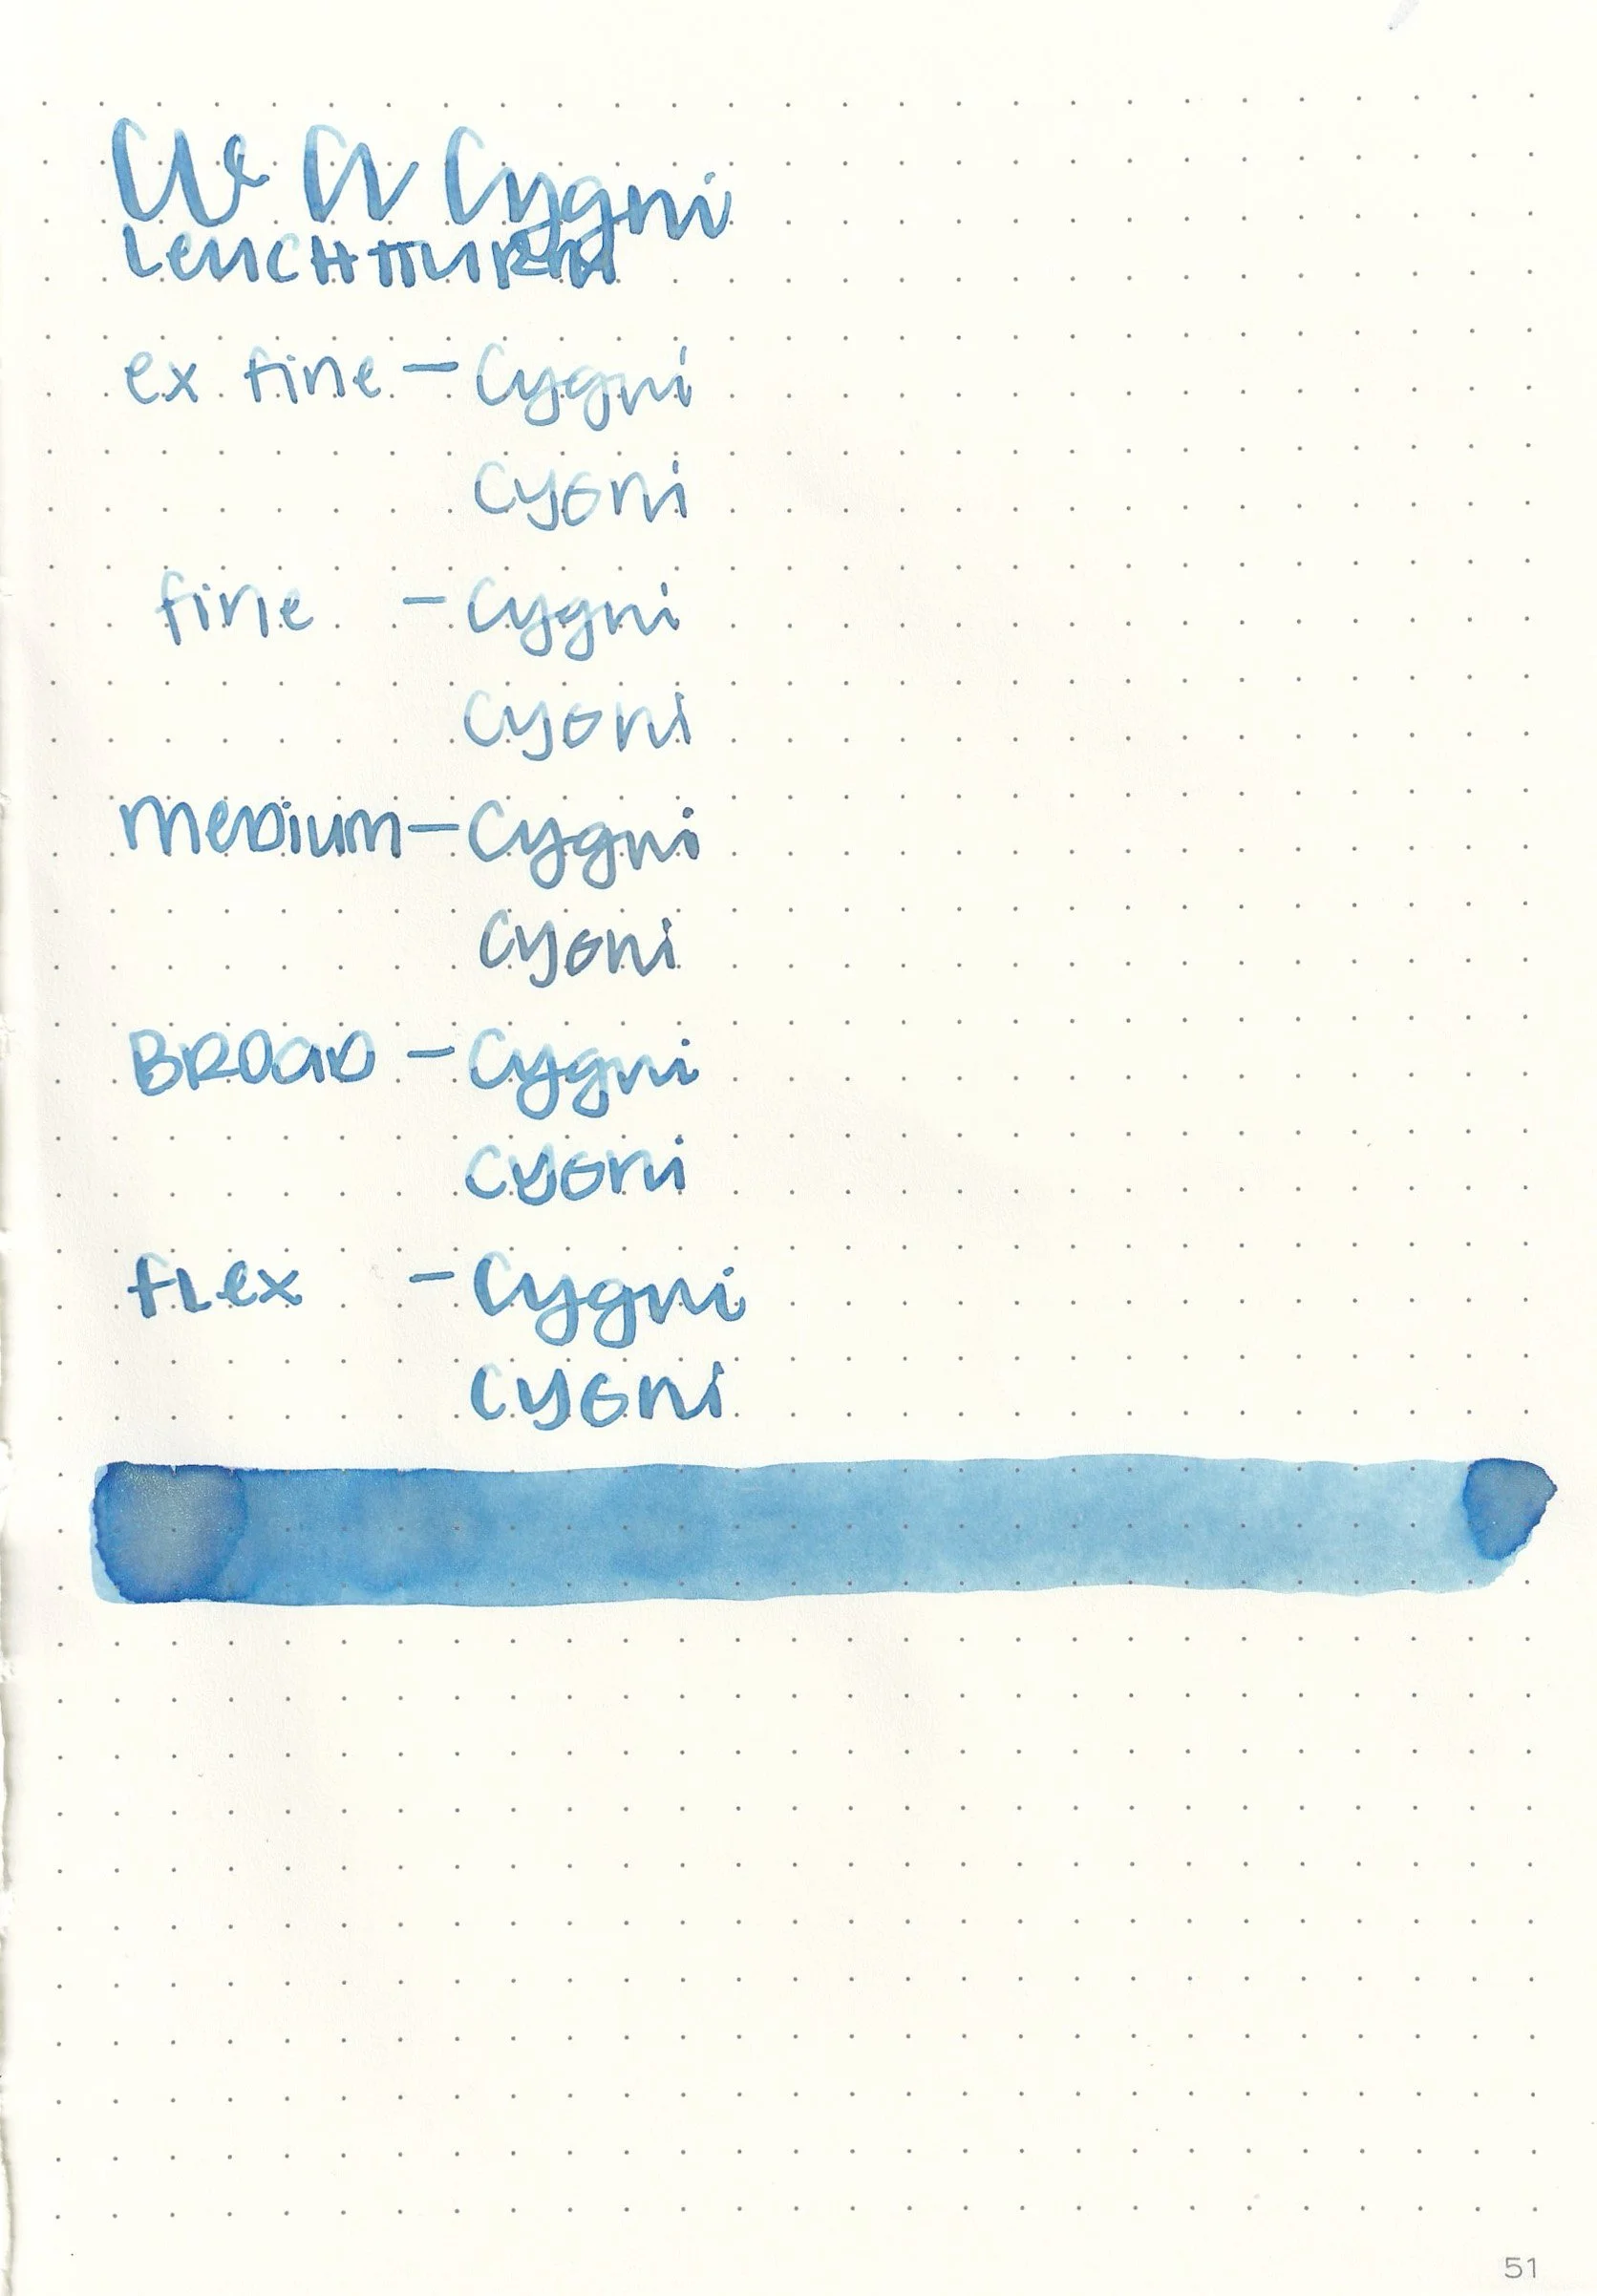 Cygni
LeUCHTTURM
ex fine - Cygni
Cygni
fine - Cygni
Cygni
MeDium - Cygni
Cygni
BROaD - Cygni
Cygni
fLex - Cygni
Cygni
51